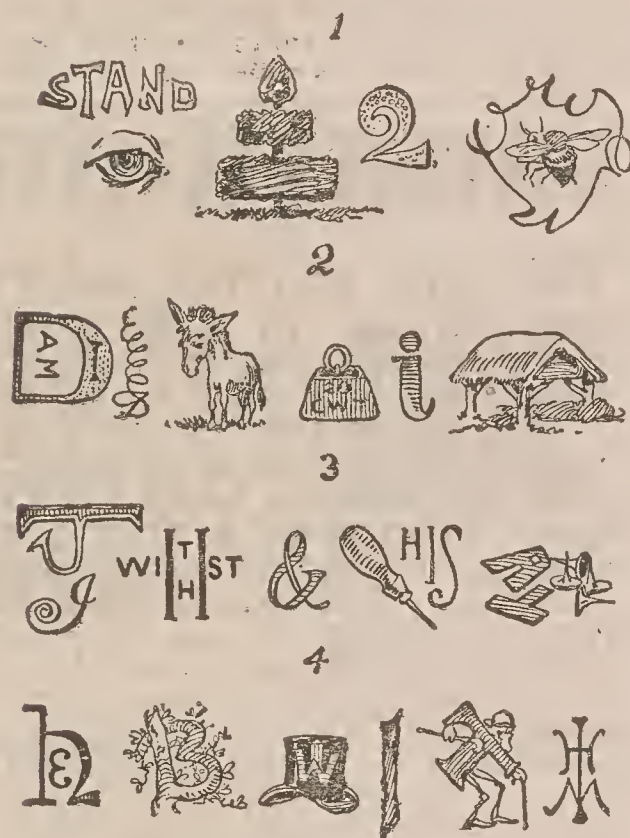 1
STAND 2
2
D AM i
3
T
J WI TH H ST & HIS
4
h E B W I